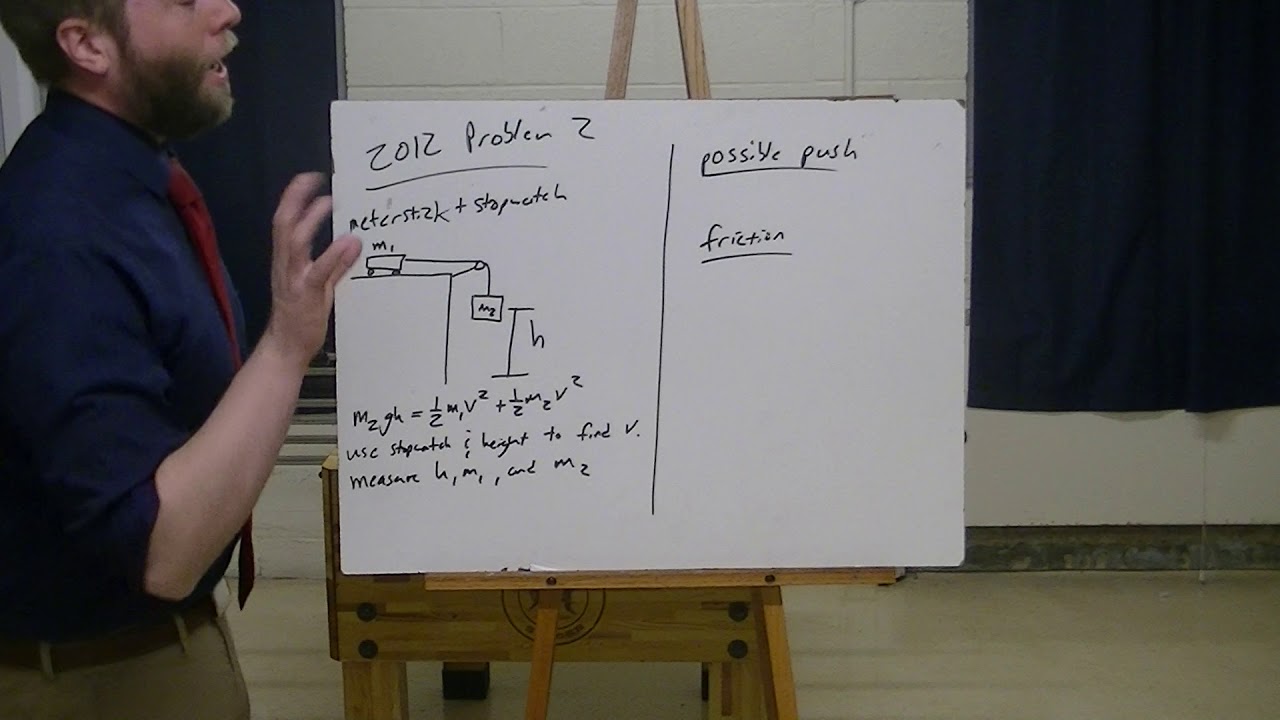 2012 Problem 2
meterstick + stopwatch
m₁
m₂
h
m₂gh = ½m₁v² + ½m₂v²
use stopwatch & height to find v.
measure h, m₁, and m₂
possible push
friction